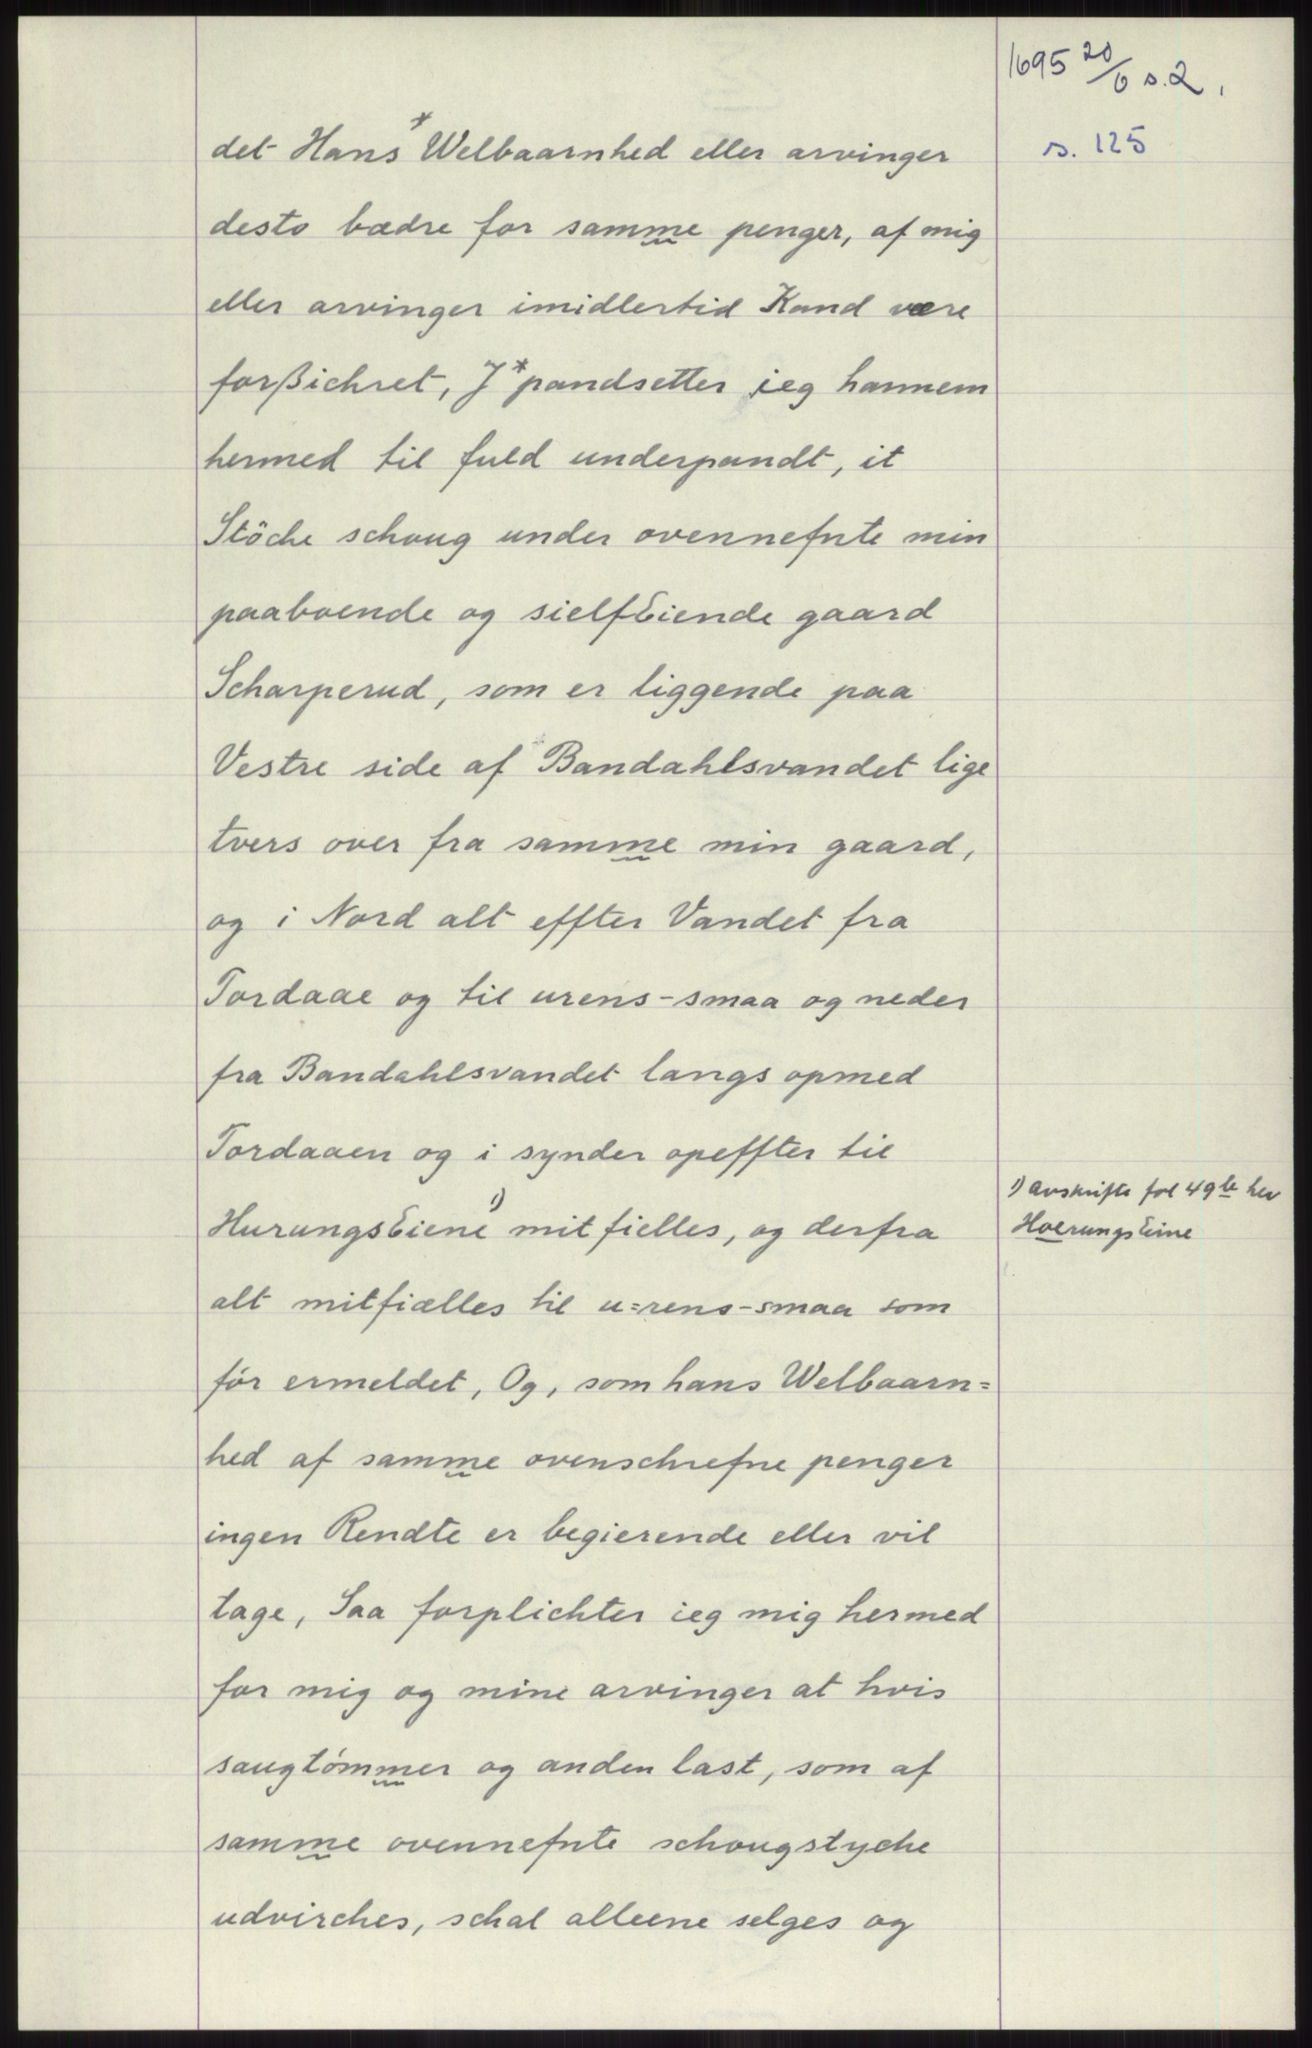 1695 20/6 s. 2.
s. 125
det Hans* Welbaarnhed eller arvinger
desto bædre for samme penger, af mig
eller arvinger imidlertid Kand være
forßichret, J* pandsetter jeg hannem
hermed til fuld underpandt, it
Stöche schoug under ovennefnte min
paaboende og sielfEiende gaard
Scharperud, som er liggende paa
Vestre side af Bandahlsvandet lige
tvers over fra samme min gaard,
og i Nord alt effter Vandet fra
Tordaae og til urens-smaa og neder
fra Bandahlsvandet langs opmed
Tordaaen og i synder opeffter til
HurungsEiene 1) mitfielles, og derfra
1) avskrifte fol 49 b har
HoerungsEine
alt mitfiælles til u=rens-smaa som
før ermeldet, Og, som hans Welbaarn=
hed af samme ovenschrefne penger
ingen Rendte er begierende eller vil
tage, Saa forplichter ieg mig hermed
for mig og mine arvinger at hvis
saugtömmer og anden last, som af
samme ovennefnte schougstyche
udvirches, schal alleene selges og